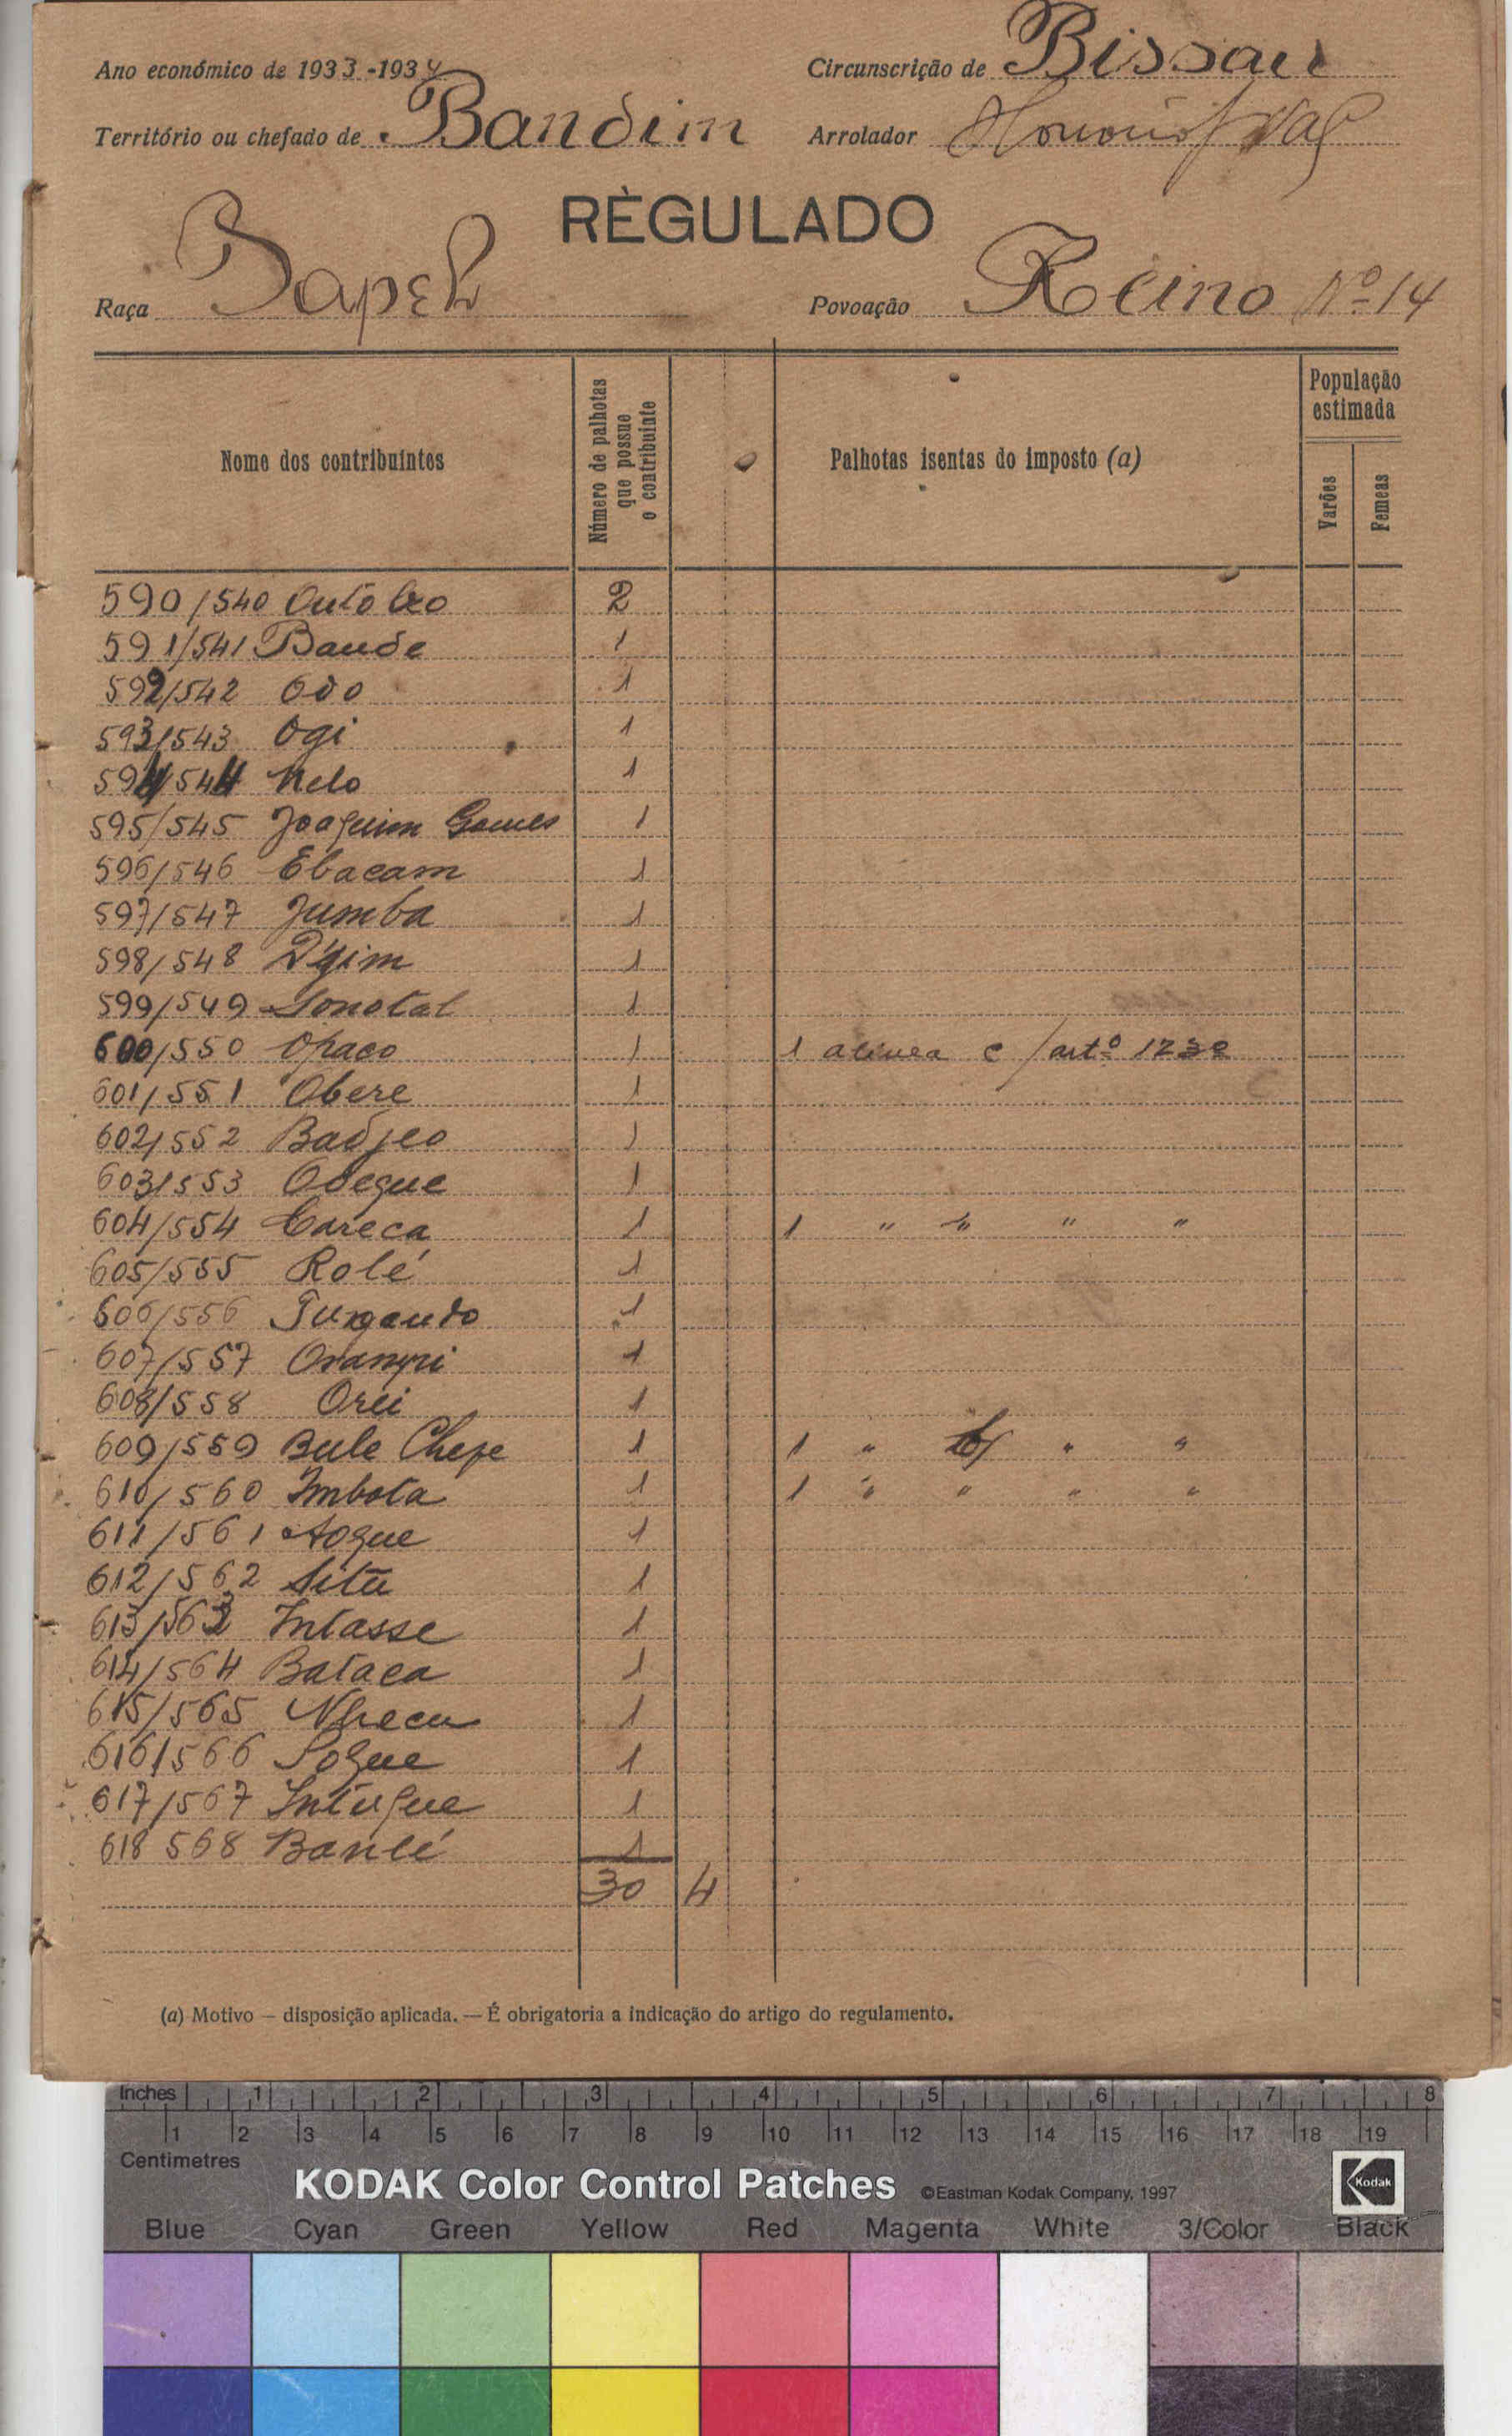 Ano económico de 1933-1934
Circunscrição de Bissau
Território ou chefado de Bandim
Arrolador
RÈGULADO
Raça Papel
Povoação Reino Nº 14
Nome dos contribuintes
Número de palhotas que possue o contribuinte
Palhotas isentas do imposto (a)
População estimada
Varões
Femeas
590/540 2
591/541 Baude 1
592/542 Odo 1
593/543 Ogi 1
594/544 Nelo 1
595/545 Joaquim Gomes 1
596/546 Ebacam 1
597/547 Jumba 1
598/548 D'gim 1
599/549 1
600/550 Opaco 1 1 alinea c / artº 123º
601/551 Obere 1
602/552 Badjeo 1
603/553 Odeque 1
604/554 Careca 1 1 " " " "
605/555 Rolé 1
606/556 1
607/557 1
608/558 Orei 1
609/559 Bule Chepe 1 1 " b/ " "
610/560 Imbota 1 1 " " " "
611/561 1
612/562 Situ 1
613/563 Intasse 1
614/564 Bataca 1
615/565 1
616/566 1
617/567 Intuque 1
618 568 Banlé 1
30 4
(a) Motivo — disposição aplicada. — É obrigatoria a indicação do artigo do regulamento.
Inches 1 2 3 4 5 6 7 8
1 2 3 4 5 6 7 8 9 10 11 12 13 14 15 16 17 18 19
Centimetres
KODAK Color Control Patches ©Eastman Kodak Company, 1997 Kodak
Blue Cyan Green Yellow Red Magenta White 3/Color Black